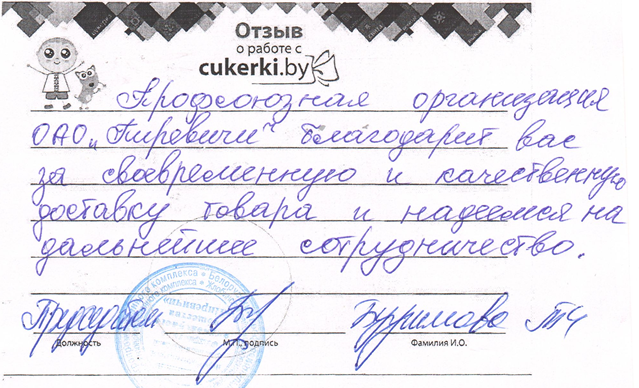 Отзыв
о работе с
cukerki.by
Профсоюзная организация
ОАО „Пиревичи" благодарит вас
за своевременную и качественную
доставку товара и надеемся на
дальнейшее сотрудничество.
Должность
М.П., подпись
Фамилия И.О.